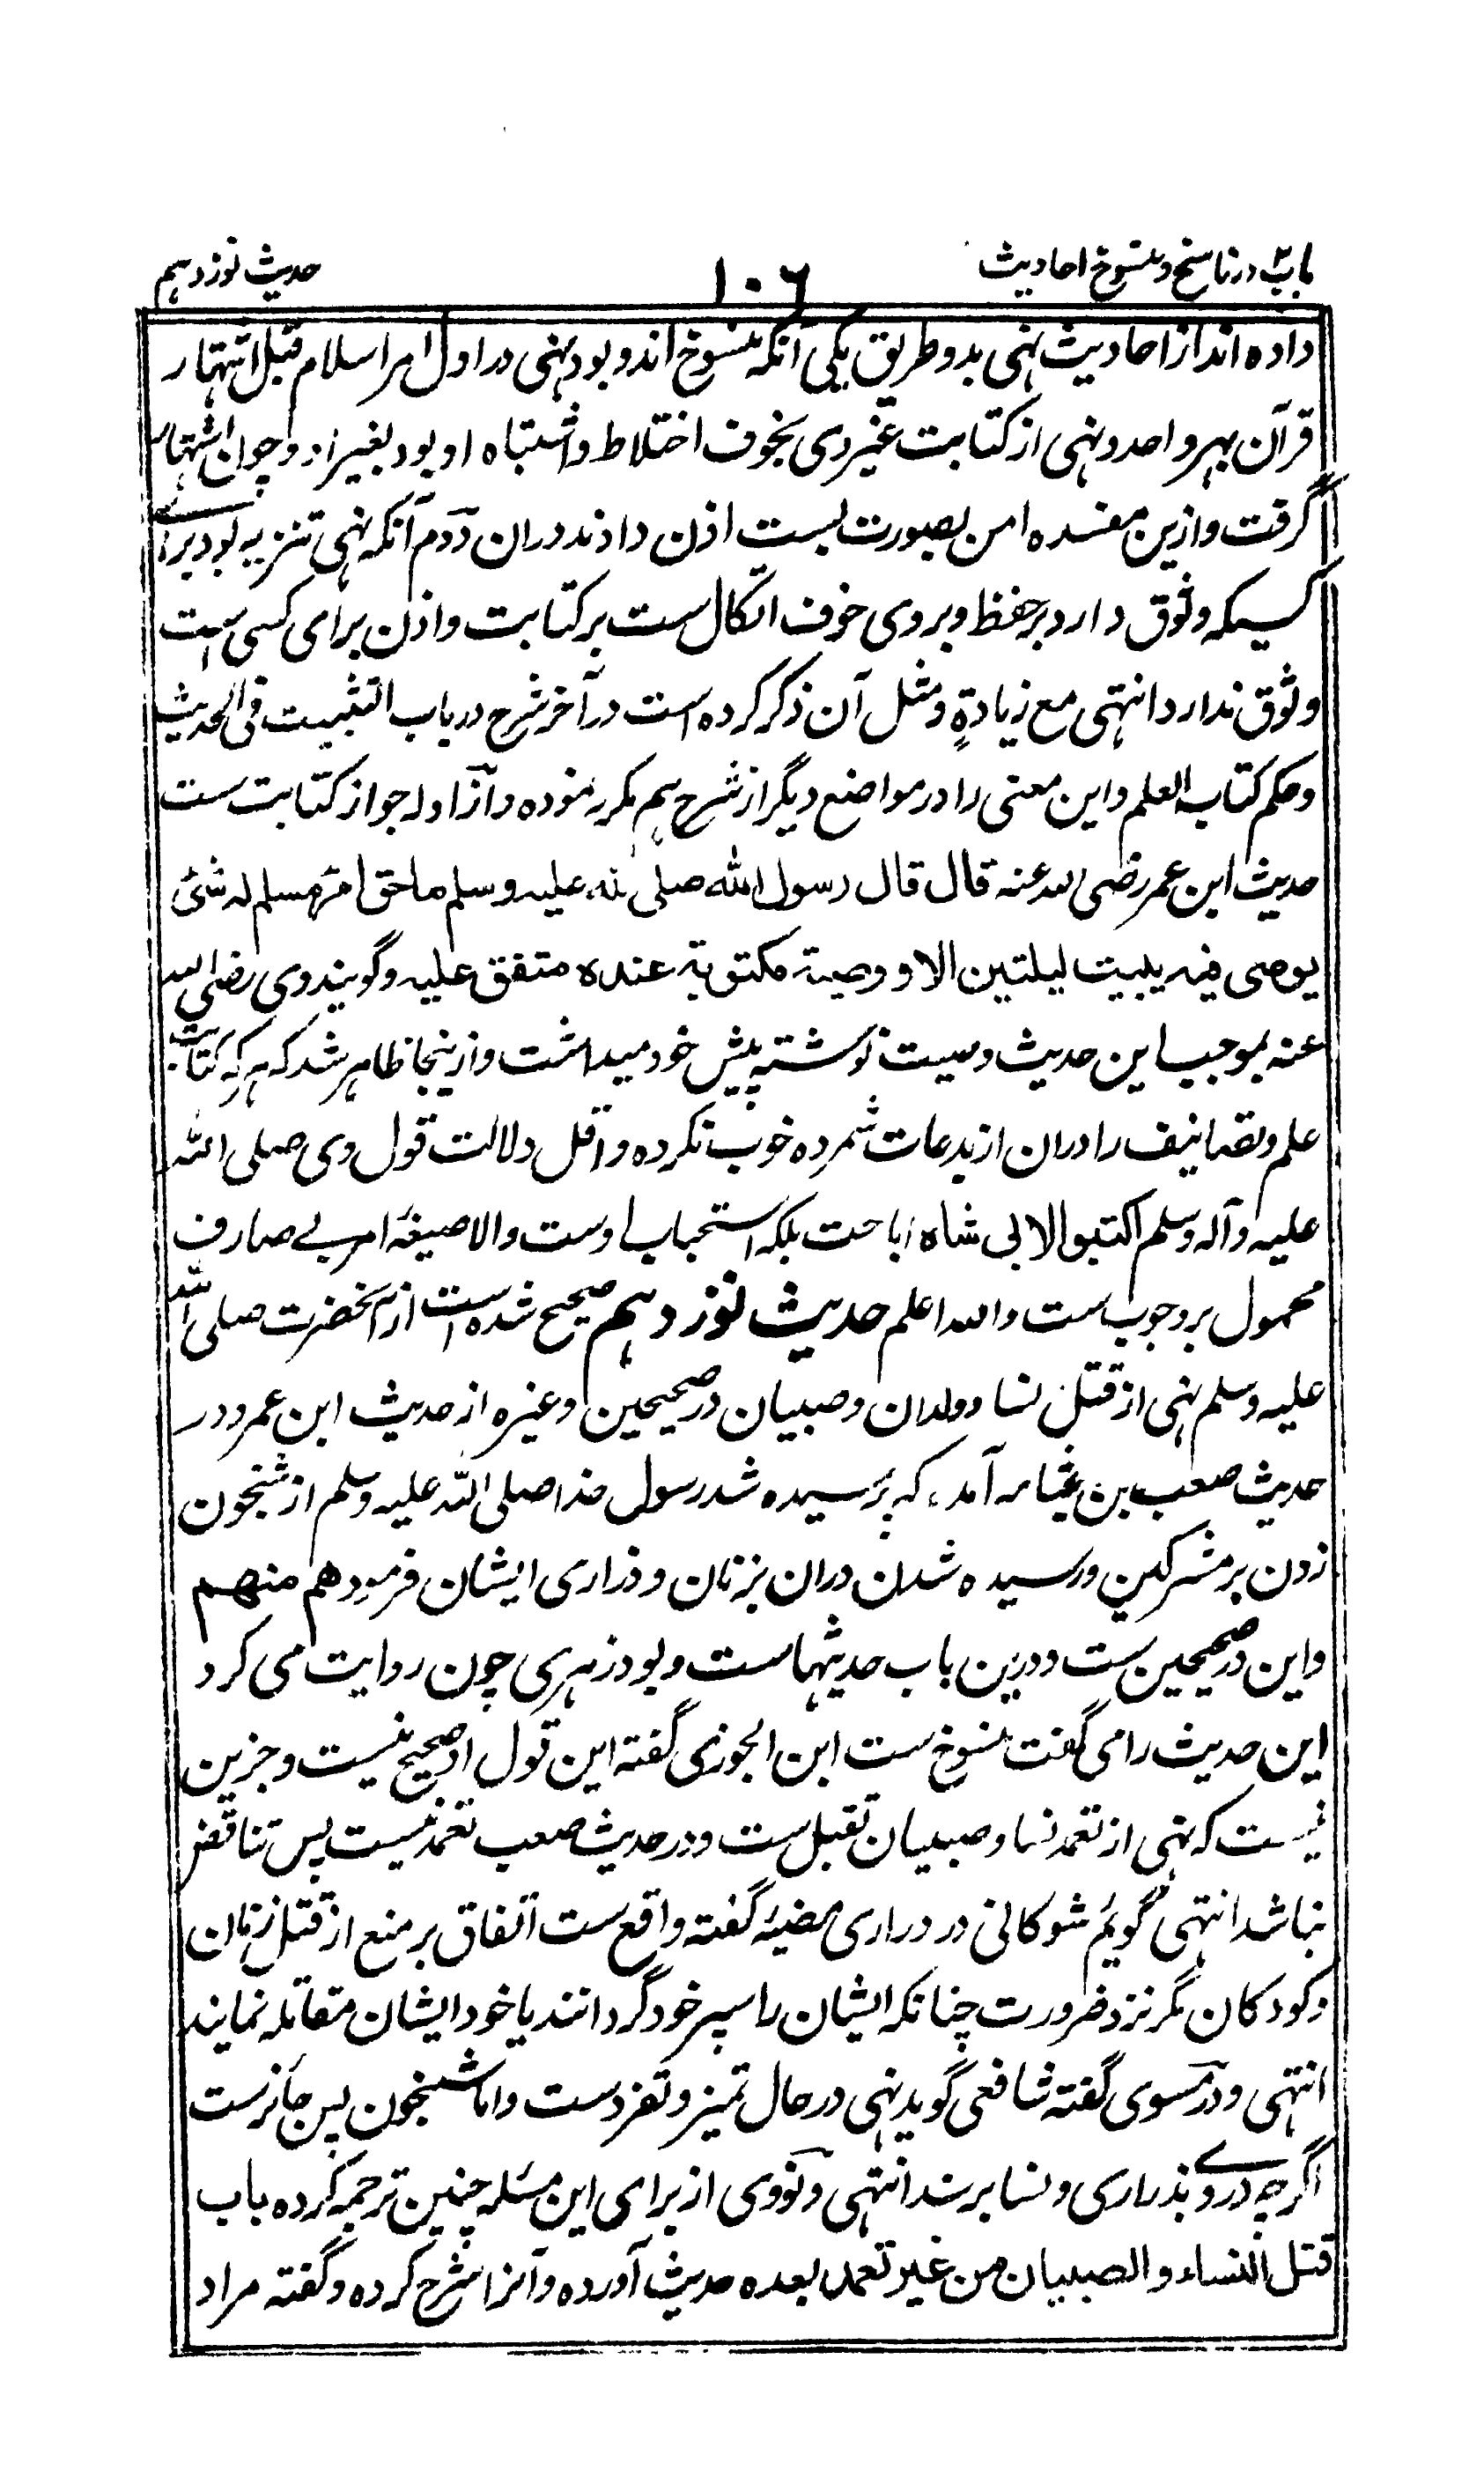 باب۲ در ناسخ و منسوخ احادیث
۱۰۶
حدیث نوزدہم
داده اند از احادیث نہی بدو طریق یکی آنکہ منسوخ اند و بود نہی در اول امر اسلام قبل اشتہار
قرآن بہر واحد و نہی از کتابت غیر وی بخوف اختلاط و اشتباہ او بود بغیر او و چون اشتہار
گرفت و ازین مفسدہ امن بصورت بست اذن دادند دران دوم آنکہ نہی تنزیہ بود برای
کسیکہ وثوق دارد بر حفظ و بر وی خوف اتکال ست بر کتابت و اذن برای کسی است
وثوق ندارد انتہی مع زیادةٍ و مثل آن ذکر کردہ است در آخر شرح در باب التثبیت فی الحدیث
و حکم کتاب العلم و این معنی را در مواضع دیگر از شرح ہم مکرر نمودہ و از ادلہ جواز کتابت ست
حدیث ابن عمر رضی اللہ عنہ قال قال رسول اللہ صلی اللہ علیہ وسلم ما حق امرء مسلم لہ شئ
یوصی فیہ یبیت لیلتین الا و وصیتہ مکتوبة عندہ متفق علیہ و گویند وی رضی اللہ
عنہ بموجب این حدیث وصیت نوشتہ پیش خود میداشت و ازینجا ظاہر شد کہ ہر کہ کتابت
علم و تصانیف را دران از بدعات شمردہ خوب نکردہ و اقل دلالت قول وی صلی اللہ
علیہ وآلہ وسلم اکتبوا لابی شاہ اباحت بلکہ استحباب اوست والا صیغۂ امر بے صارف
محمول بر وجوب ست واللہ اعلم حدیث نوزدہم صحیح شدہ است از آنحضرت صلی اللہ
علیہ وسلم نہی از قتل نسا و ولدان و صبیان در صحیحین و غیرہ از حدیث ابن عمر و در
حدیث صعب بن جثامہ آمدہ کہ پرسیدہ شد رسول خدا صلی اللہ علیہ وسلم از شبخون
زدن بر مشرکین و رسیدہ شدن دران بزنان و ذراری ایشان فرمود هم منهم
و این در صحیحین ست و درین باب حدیثہاست و بود زہری چون روایت می کرد
این حدیث را می گفت منسوخ ست ابن الجوزی گفتہ این قول او صحیح نیست و جزین
نیست کہ نہی از تعمد نسا و صبیان بقتل ست و در حدیث صعب تعمد نیست پس تناقض
نباشد انتہی گویم شوکانی در دراری مضیئہ گفتہ واقع ست اتفاق بر منع از قتل زنان
و کودکان مگر نزد ضرورت چنانکہ ایشان را سپر خود گردانند یا خود ایشان مقاتلہ نمایند
انتہی و در مسوی گفتہ شافعی گوید نہی در حال تمیز و تفرد ست و اما شبخون پس جائز ست
اگرچہ در وے بذراری و نسا برسد انتہی و نووی از برای این مسئلہ چنین ترجمہ کردہ باب
قتل النساء و الصبیان من غیر تعمد بعدہ حدیث آوردہ و آنرا شرح کردہ و گفتہ مراد